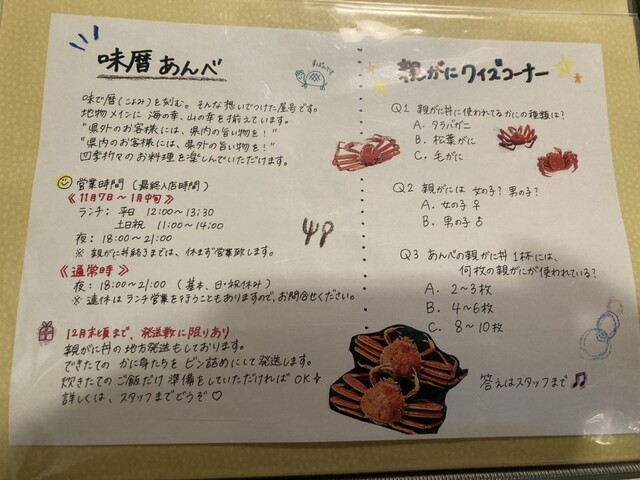 味暦 あんべ
味で暦(こよみ)を刻む。そんな想いでつけた屋号です。
地物メインに 海の幸、山の幸を揃えています。
"県外のお客様には、県内の旨い物を！"
"県内のお客様には、県外の旨い物を！"
四季折々のお料理を楽しんでいただけます。
営業時間 (最終入店時間)
《11月7日～1月中旬》
ランチ： 平日 12:00～13:30
土日祝 11:00～14:00
夜： 18:00～21:00
※ 親がに丼終了までは、休まず営業致します。
《通常時》
夜： 18:00～21:00 (基本、日・祝休み)
※ 連休はランチ営業を行うこともありますので、お問合せください。
12月末頃まで、発送数に限りあり
親がに丼の地方発送もしております。
できたての かに身たちを ビン詰めにして発送します。
炊きたてのご飯だけ 準備をしていただければ OK♪
詳しくは、スタッフまでどうぞ♡
親がにクイズコーナー
Q1 親がに丼に使われてるかにの種類は？
A. タラバガニ
B. 松葉がに
C. 毛がに
Q2 親がには 女の子？ 男の子？
A. 女の子♀
B. 男の子♂
Q3 あんべの親がに丼 1杯には、
何枚の親がにが使われている？
A. 2～3枚
B. 4～6枚
C. 8～10枚
答えはスタッフまで♫